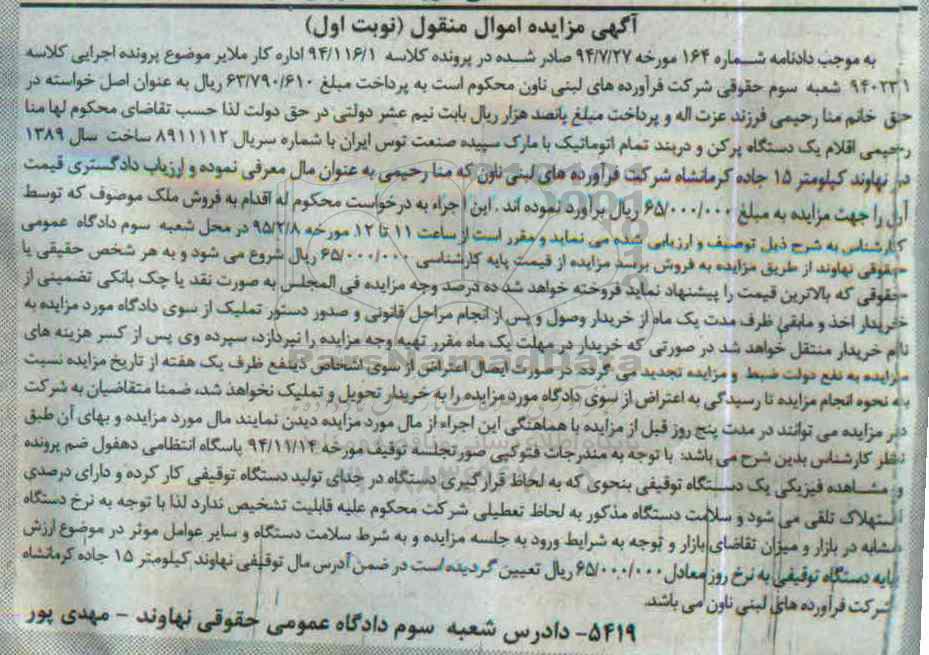 آگهی مزایده اموال منقول (نوبت اول)
به موجب دادنامه شماره ۱۶۴ مورخه ۹۴/۷/۲۷ صادر شده در پرونده کلاسه ۹۴/۱۱۶/۱ اداره کار ملایر موضوع پرونده اجرایی کلاسه
۹۴۰۲۳۱ شعبه سوم حقوقی شرکت فرآورده های لبنی ناون محکوم است به پرداخت مبلغ ۶۳/۷۹۰/۶۱۰ ریال به عنوان اصل خواسته در
حق خانم منا رحیمی فرزند عزت اله و پرداخت مبلغ پانصد هزار ریال بابت نیم عشر دولتی در حق دولت لذا حسب تقاضای محکوم لها منا
رحیمی اقلام یک دستگاه پرکن و دربند تمام اتوماتیک با مارک سپیده صنعت توس ایران با شماره سریال ۸۹۱۱۱۱۲ ساخت سال ۱۳۸۹
در نهاوند کیلومتر ۱۵ جاده کرمانشاه شرکت فرآورده های لبنی ناون که منا رحیمی به عنوان مال معرفی نموده و ارزیاب دادگستری قیمت
آن را جهت مزایده به مبلغ ۶۵/۰۰۰/۰۰۰ ریال برآورد نموده اند. این اجراء به درخواست محکوم له اقدام به فروش ملک موصوف که توسط
کارشناس به شرح ذیل توصیف و ارزیابی شده می نماید و مقرر است از ساعت ۱۱ تا ۱۲ مورخه ۹۵/۲/۸ در محل شعبه سوم دادگاه عمومی
حقوقی نهاوند از طریق مزایده به فروش برسد مزایده از قیمت پایه کارشناسی ۶۵/۰۰۰/۰۰۰ ریال شروع می شود و به هر شخص حقیقی یا
حقوقی که بالاترین قیمت را پیشنهاد نماید فروخته خواهد شد ده درصد وجه مزایده فی المجلس به صورت نقد یا چک بانکی تضمینی از
خریدار اخذ و مابقی ظرف مدت یک ماه از خریدار وصول و پس از انجام مراحل قانونی و صدور دستور تملیک از سوی دادگاه مورد مزایده به
نام خریدار منتقل خواهد شد در صورتی که خریدار در مهلت یک ماه مقرر تهیه وجه مزایده را نپردازد، سپرده وی پس از کسر هزینه های
مزایده به نفع دولت ضبط و مزایده تجدید می گردد در صورت ایصال اعتراض از سوی اشخاص ذینفع ظرف یک هفته از تاریخ مزایده نسبت
به نحوه انجام مزایده تا رسیدگی به اعتراض از سوی دادگاه مورد مزایده را به خریدار تحویل و تملیک نخواهد شد، ضمنا متقاضیان به شرکت
در مزایده می توانند در مدت پنج روز قبل از مزایده با هماهنگی این اجراء از مال مورد مزایده دیدن نمایند مال مورد مزایده و بهای آن طبق
نظر کارشناس بدین شرح می باشد: با توجه به مندرجات فتوکپی صورتجلسه توقیف مورخه ۹۴/۱۱/۱۴ پاسگاه انتظامی دهفول ضم پرونده
و مشاهده فیزیکی یک دستگاه توقیفی بنحوی که به لحاظ قرارگیری دستگاه در جدای تولید دستگاه توقیفی کار کرده و دارای درصدی
استهلاک تلقی می شود و سلامت دستگاه مذکور به لحاظ تعطیلی شرکت محکوم علیه قابلیت تشخیص ندارد لذا با توجه به نرخ دستگاه
مشابه در بازار و میزان تقاضای بازار و توجه به شرایط ورود به جلسه مزایده و به شرط سلامت دستگاه و سایر عوامل موثر در موضوع ارزش
پایه دستگاه توقیفی به نرخ روز معادل ۶۵/۰۰۰/۰۰۰ ریال تعیین گردیده است در ضمن آدرس مال توقیفی نهاوند کیلومتر ۱۵ جاده کرمانشاه
شرکت فرآورده های لبنی ناون می باشد.
۵۴۱۹- دادرس شعبه سوم دادگاه عمومی حقوقی نهاوند - مهدی پور
ParsNamadData